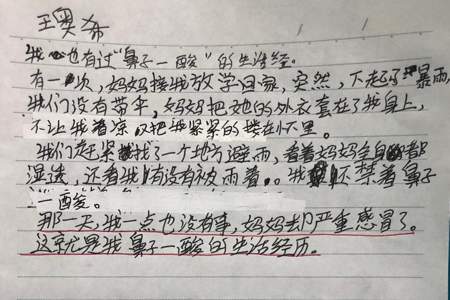 王奥希
我也有过“鼻子一酸”的生活经。
有一次，妈妈接我放学回家，突然，下起了暴雨，
我们没有带伞，妈妈把她的外衣套在了我身上，
不让我着凉 把我紧紧的搂在怀里。
我们赶紧找了一个地方避雨，看着妈妈全身都
湿透，还看我有没有被雨着。我不禁着鼻子
一酸。
那一天，我一点也没有事，妈妈去严重感冒了。
这就是我鼻子一酸的生活经历。